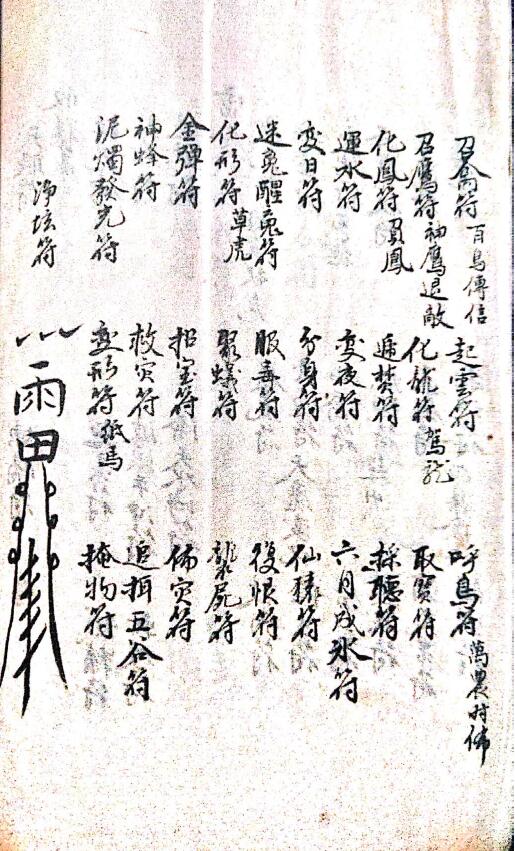 召符 百鳥傳信 起雲符 呼鳥符
召鷹符 神鷹退敵 化龍符 駕龍 取寶符
化鳳符 召鳳 遞焚符 採聽符
運水符 變夜符 六月成冰符
變日符 分身符 仙猿符
迷魂醒魂符 服毒符 復恨符
化形符 草虎 聚蟻符 襲屍符
金彈符 招寶符 佈災符
神蜂符 救災符 追捐五谷符
泥燭發光符 變形符 紙馬 掩物符
淨坛符 雨田